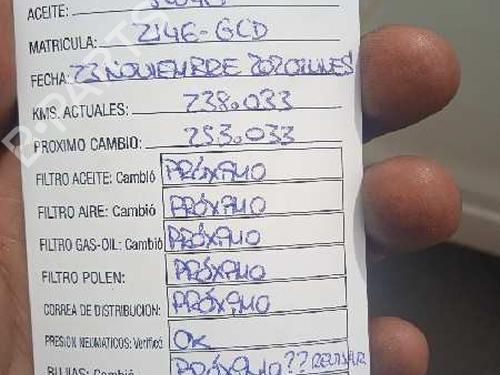 ACEITE:
MATRICULA: 2146-GCD
FECHA: 23 NOVIEMBRE 2020 LUNES
KMS. ACTUALES: 238.033
PROXIMO CAMBIO: 253.033
FILTRO ACEITE: Cambió PRÓXIMO
FILTRO AIRE: Cambió PRÓXIMO
FILTRO GAS-OIL: Cambió PRÓXIMO
FILTRO POLEN: PRÓXIMO
CORREA DE DISTRIBUCION: PRÓXIMO
PRESION NEUMATICOS: Verificó OK
BUJIAS: Cambió PRÓXIMO?? REVISAR
B-PARTS